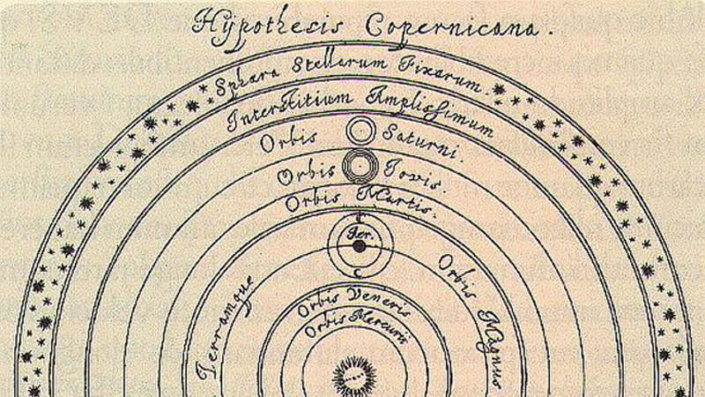 Hÿpothesis Copernicana.
Sphæra Stellarum Fixarum.
Interstitium Amplissimum
Orbis Saturni.
Orbis Jovis.
Orbis Martis.
Ter.
Orbis Magnus
Terramque
Orbis Veneris
Orbis Mercurii